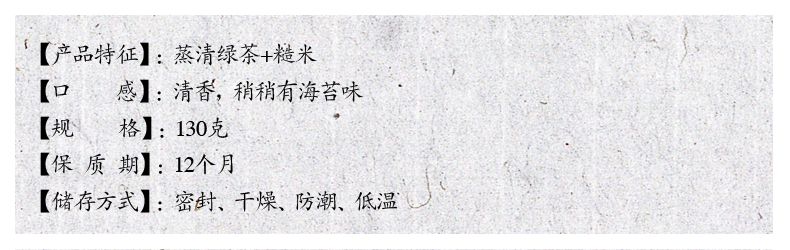 【产品特征】：蒸清绿茶+糙米
【口　　感】：清香，稍稍有海苔味
【规　　格】：130克
【保 质 期】：12个月
【储存方式】：密封、干燥、防潮、低温